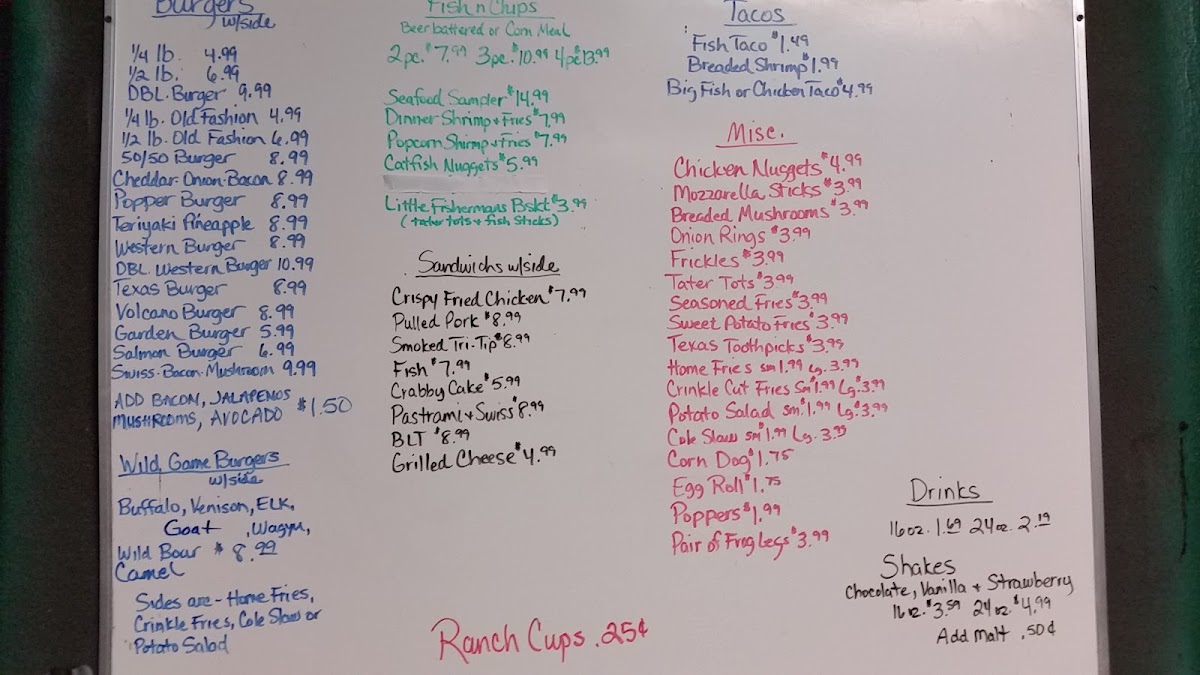 Burgers
w/side
1/4 lb. 4.99
1/2 lb. 6.99
DBL. Burger 9.99
1/4 lb. Old Fashion 4.99
1/2 lb. Old Fashion 6.99
50/50 Burger 8.99
Cheddar-Onion-Bacon 8.99
Popper Burger 8.99
Teriyaki Pineapple 8.99
Western Burger 8.99
DBL. Western Burger 10.99
Texas Burger 8.99
Volcano Burger 8.99
Garden Burger 5.99
Salmon Burger 6.99
Swiss-Bacon-Mushroom 9.99
ADD BACON, JALAPENOS
MUSHROOMS, AVOCADO $1.50
Wild Game Burgers
w/side
Buffalo, Venison, ELK,
Goat, Wagyu,
Wild Boar $8.99
Camel
Sides are - Home Fries,
Crinkle Fries, Cole Slaw or
Potato Salad
Fish n Chips
Beer battered or Corn Meal
2pc. $7.99 3pc. $10.99 4pc $13.99
Seafood Sampler $14.99
Dinner Shrimp + Fries $7.99
Popcorn Shrimp + Fries $7.99
Catfish Nuggets $5.99
Little Fishermans Bskt $3.99
(tater tots + fish sticks)
Sandwichs w/side
Crispy Fried Chicken $7.99
Pulled Pork $8.99
Smoked Tri-Tip $8.99
Fish $7.99
Crabby Cake $5.99
Pastrami + Swiss $8.99
BLT $8.99
Grilled Cheese $4.99
Ranch Cups .25¢
Tacos
Fish Taco $1.49
Breaded Shrimp $1.99
Big Fish or Chicken Taco $4.99
Misc.
Chicken Nuggets $4.99
Mozzarella Sticks $3.99
Breaded Mushrooms $3.99
Onion Rings $3.99
Frickles $3.99
Tater Tots $3.99
Seasoned Fries $3.99
Sweet Potato Fries $3.99
Texas Toothpicks $3.99
Home Fries sm 1.99 Lg. 3.99
Crinkle Cut Fries Sm $1.99 Lg. $3.99
Potato Salad sm. $1.99 Lg. $3.99
Cole Slaw sm $1.99 Lg. 3.99
Corn Dog $1.75
Egg Roll $1.75
Poppers $1.99
Pair of Frog Legs $3.99
Drinks
16oz. 1.69 24oz. 2.19
Shakes
Chocolate, Vanilla + Strawberry
16oz. $3.59 24oz. $4.99
Add Malt .50¢